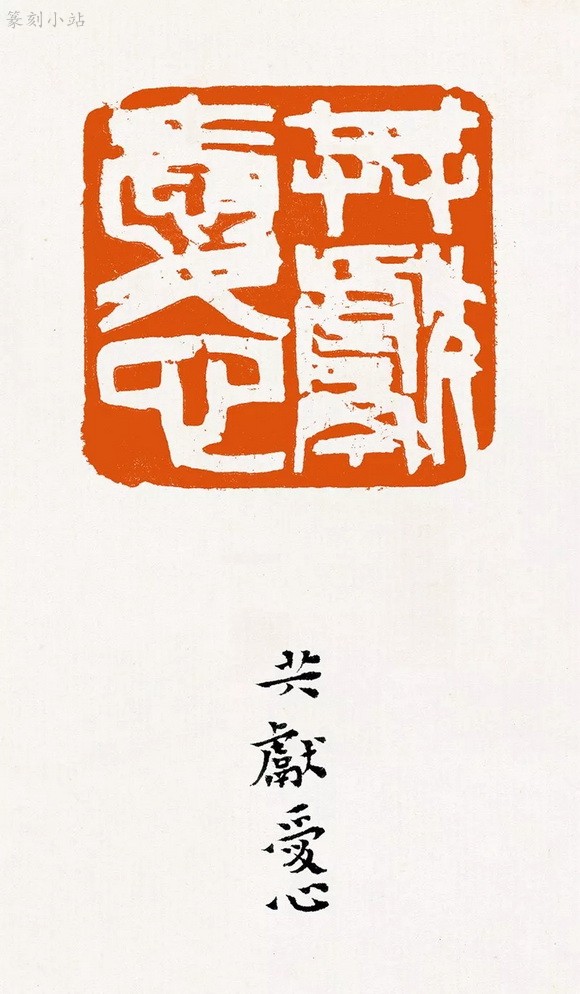 篆刻小站
共獻
愛心
共
獻
愛
心